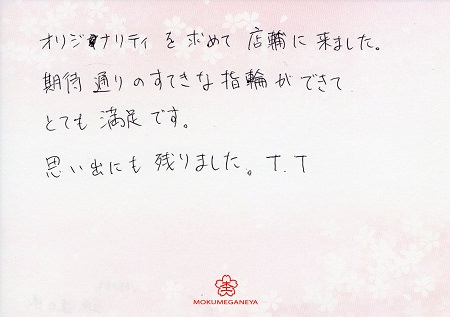 オリジナリティを求めて店輪に来ました。
期待通りのすてきな指輪ができて
とても満足です。
思い出にも残りました。T.T
MOKUMEGANEYA